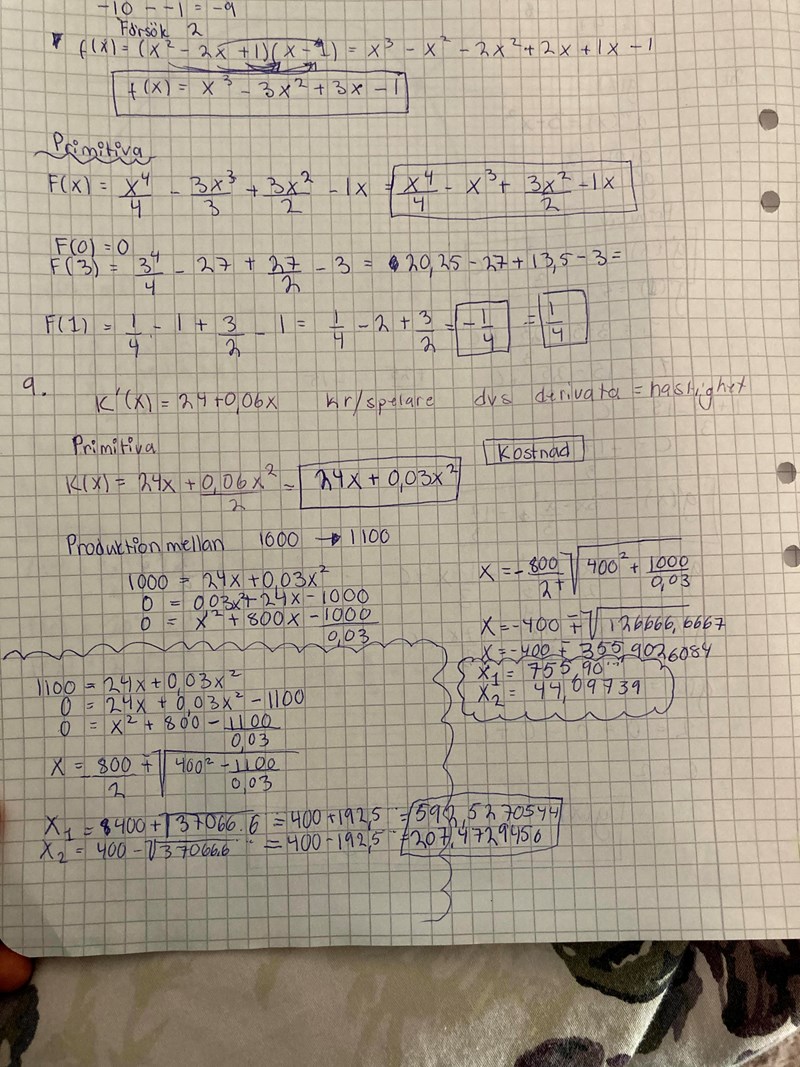 -10 - -1 = -9
Försök 2
f(x) = (x² - 2x + 1)(x - 1) = x³ - x² - 2x² + 2x + 1x - 1
f(x) = x³ - 3x² + 3x - 1
Primitiva
F(x) = x⁴/4 - 3x³/3 + 3x²/2 - 1x = x⁴/4 - x³ + 3x²/2 - 1x
F(0) = 0
F(3) = 3⁴/4 - 27 + 27/2 - 3 = 20,25 - 27 + 13,5 - 3 =
F(1) = 1/4 - 1 + 3/2 - 1 = 1/4 - 2 + 3/2 = -1/4 = 1/4
9.
K'(x) = 24 + 0,06x kr/spelare dvs derivata = hastighet
Primitiva
Kostnad
K(x) = 24x + 0,06x²/2 = 24x + 0,03x²
Produktion mellan 1000 → 1100
1000 = 24x + 0,03x²
0 = 0,03x² + 24x - 1000
0 = x² + 800x - 1000/0,03
x = -800/2 ∓ √400² + 1000/0,03
x = -400 ∓ √126666,6667
x = -400 ∓ 355,9026084
x₁ = 755,90...
x₂ = 44,09739
1100 = 24x + 0,03x²
0 = 24x + 0,03x² - 1100
0 = x² + 800 - 1100/0,03
x = 800/2 ∓ √400² - 1100/0,03
x₁ = 400 + √37066.6 = 400 + 192,5 = 592,5270544
x₂ = 400 - √37066.6... = 400 - 192,5 = 207,4729456